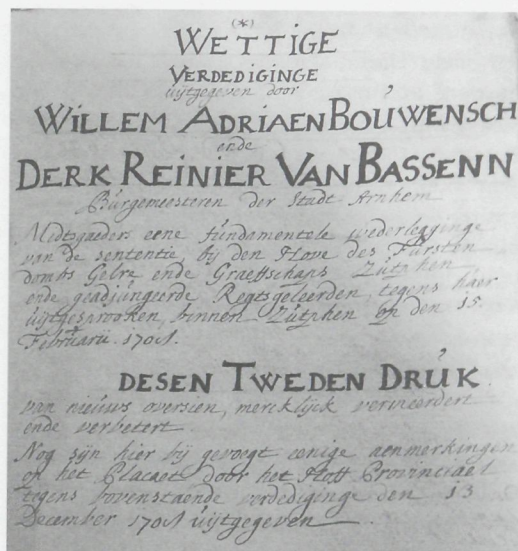 (*)
WETTIGE
VERDEDIGINGE
uijtgegeven door
WILLEM ADRIAEN BOÚWENSCH
ende
DERK REINIER VAN BASSENN
Búrgemeesteren der Stadt Arnhem
Medtsgaeders eene fúndamentele wederlegginge
van de sententie, bij den Hove des Fúrsten
dombs Gelre ende Graeffschaps Zútphen
ende geadjúngeerde Regtsgeleerden, tegens haer
uijtgesprooken, binnen Zútphen op den 15
Februarii 170
DESEN TWEDEN DRÚK
van nieúws oversien, mercklijck vermeerdert
ende verbetert
Nog sijn hier bij gevoegt eenige aenmerkingen
op het Placaet door het Hoff Provinciael
tegens bovenstaende verdediginge den 13
December 170 úijtgegeven